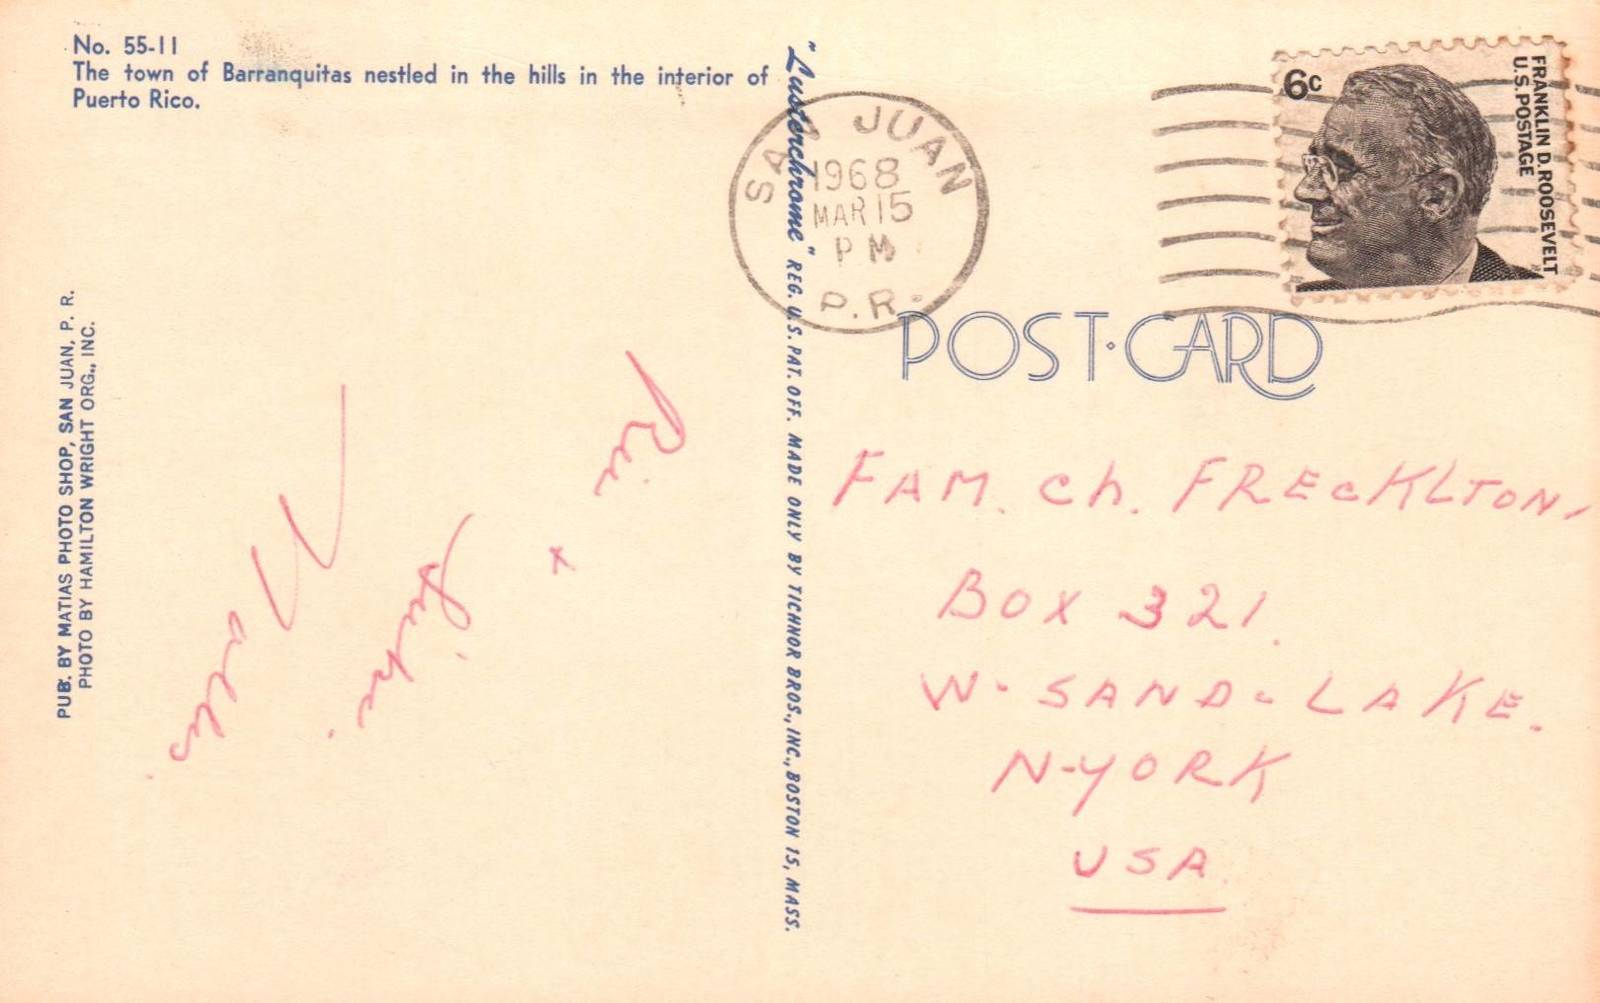 No. 55-11
The town of Barranquitas nestled in the hills in the interior of
Puerto Rico.
PUB. BY MATIAS PHOTO SHOP, SAN JUAN, P. R.
PHOTO BY HAMILTON WRIGHT ORG., INC.
"Lusterchrome" REG. U.S. PAT. OFF. MADE ONLY BY TICHNOR BROS., INC., BOSTON 15, MASS.
SAN JUAN
1968
MAR 15
PM
P.R.
6c
FRANKLIN D. ROOSEVELT
U.S. POSTAGE
POST·CARD
FAM. Ch. FRECKLTON.
BOX 321.
W- SAND-LAKE.
N-YORK
USA.